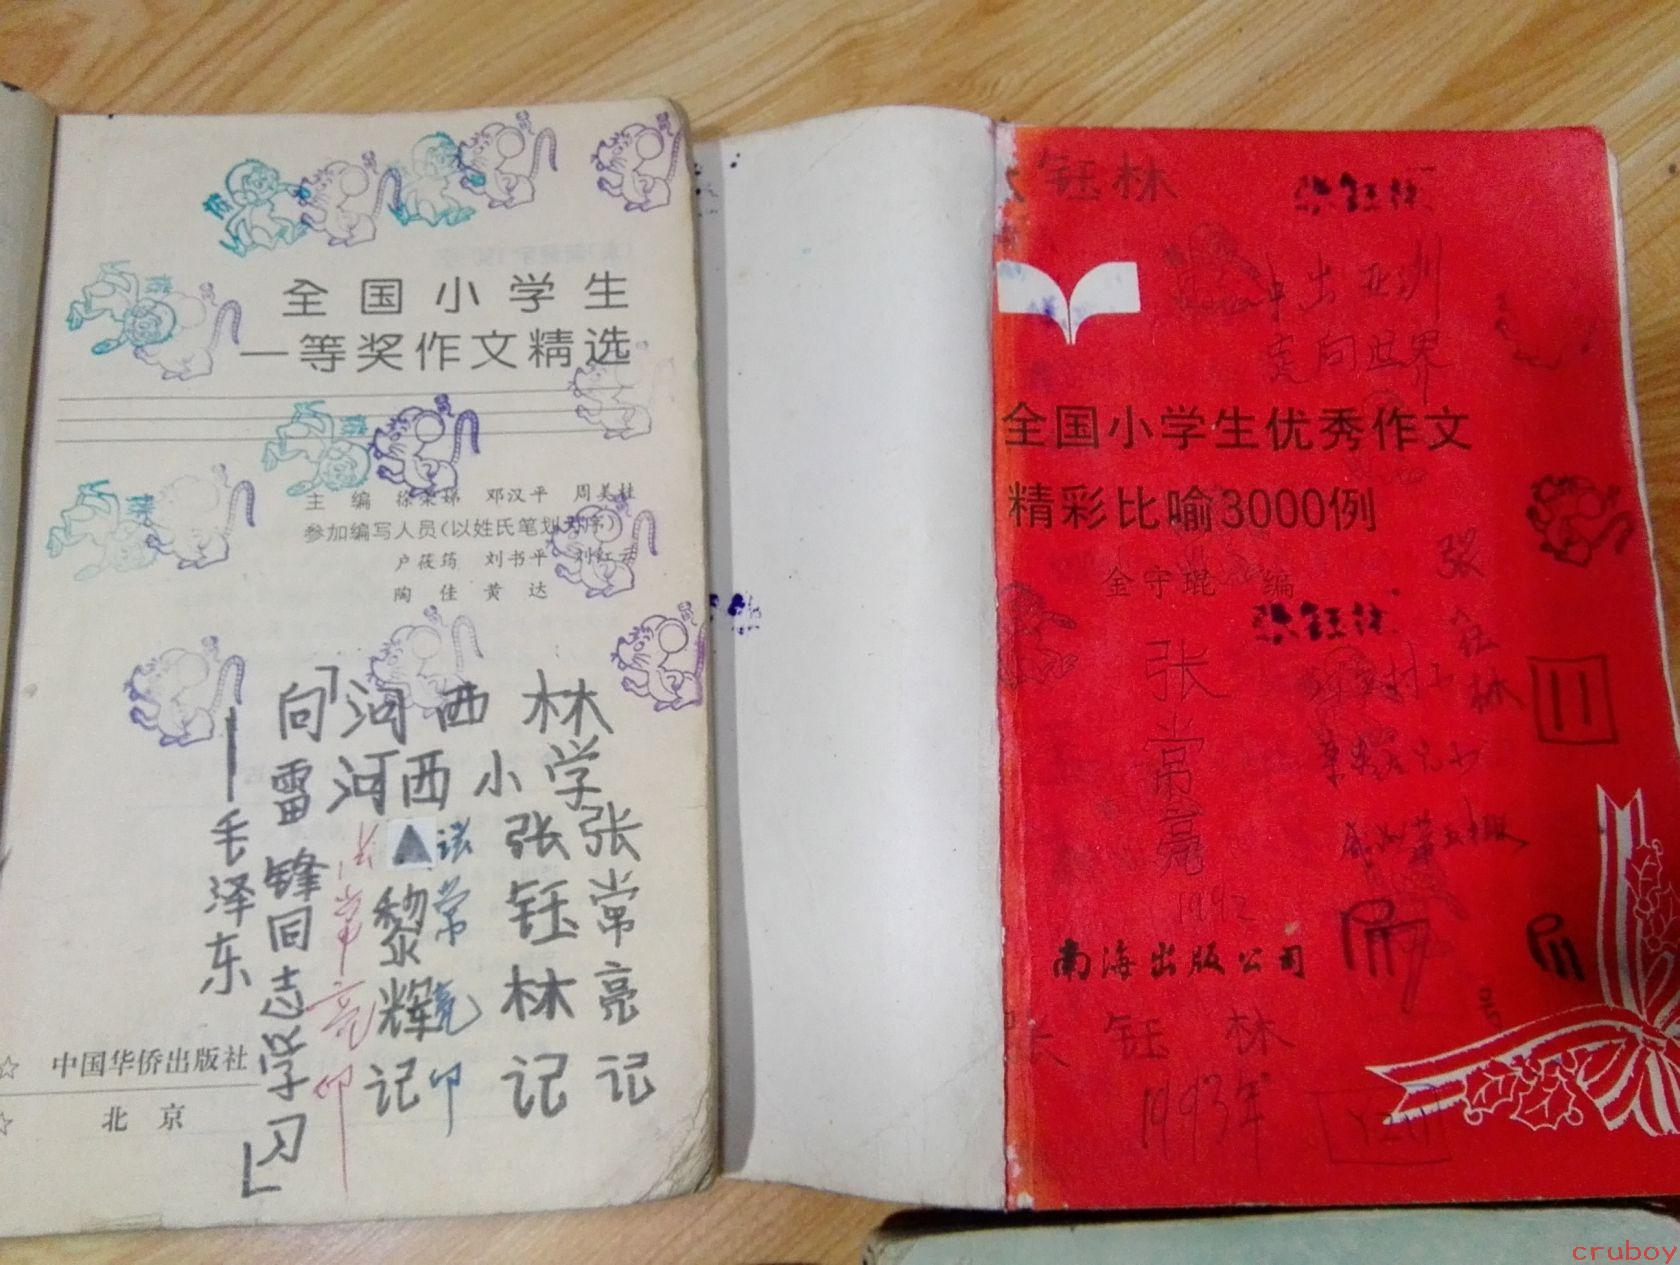 全国小学生
一等奖作文精选
主 编 徐荣娣 邓汉平 周美桂
参加编写人员(以姓氏笔划为序)
卢筱筠 刘书平 刘红云
陶 佳 黄 达
林
学
张常亮记
西
小
张钰林记
「河
河西
黎辉记
张常亮印
张常亮印
向雷锋同志学习」
—毛泽东
☆ 中国华侨出版社
☆ 北 京
钰林
张钰林
冲出亚洲
走向世界
全国小学生优秀作文
精彩比喻3000例
金守琨 编
张钰林
张钰林
张常亮
1992
南海出版公司
张 钰 林
1993年
cruboy